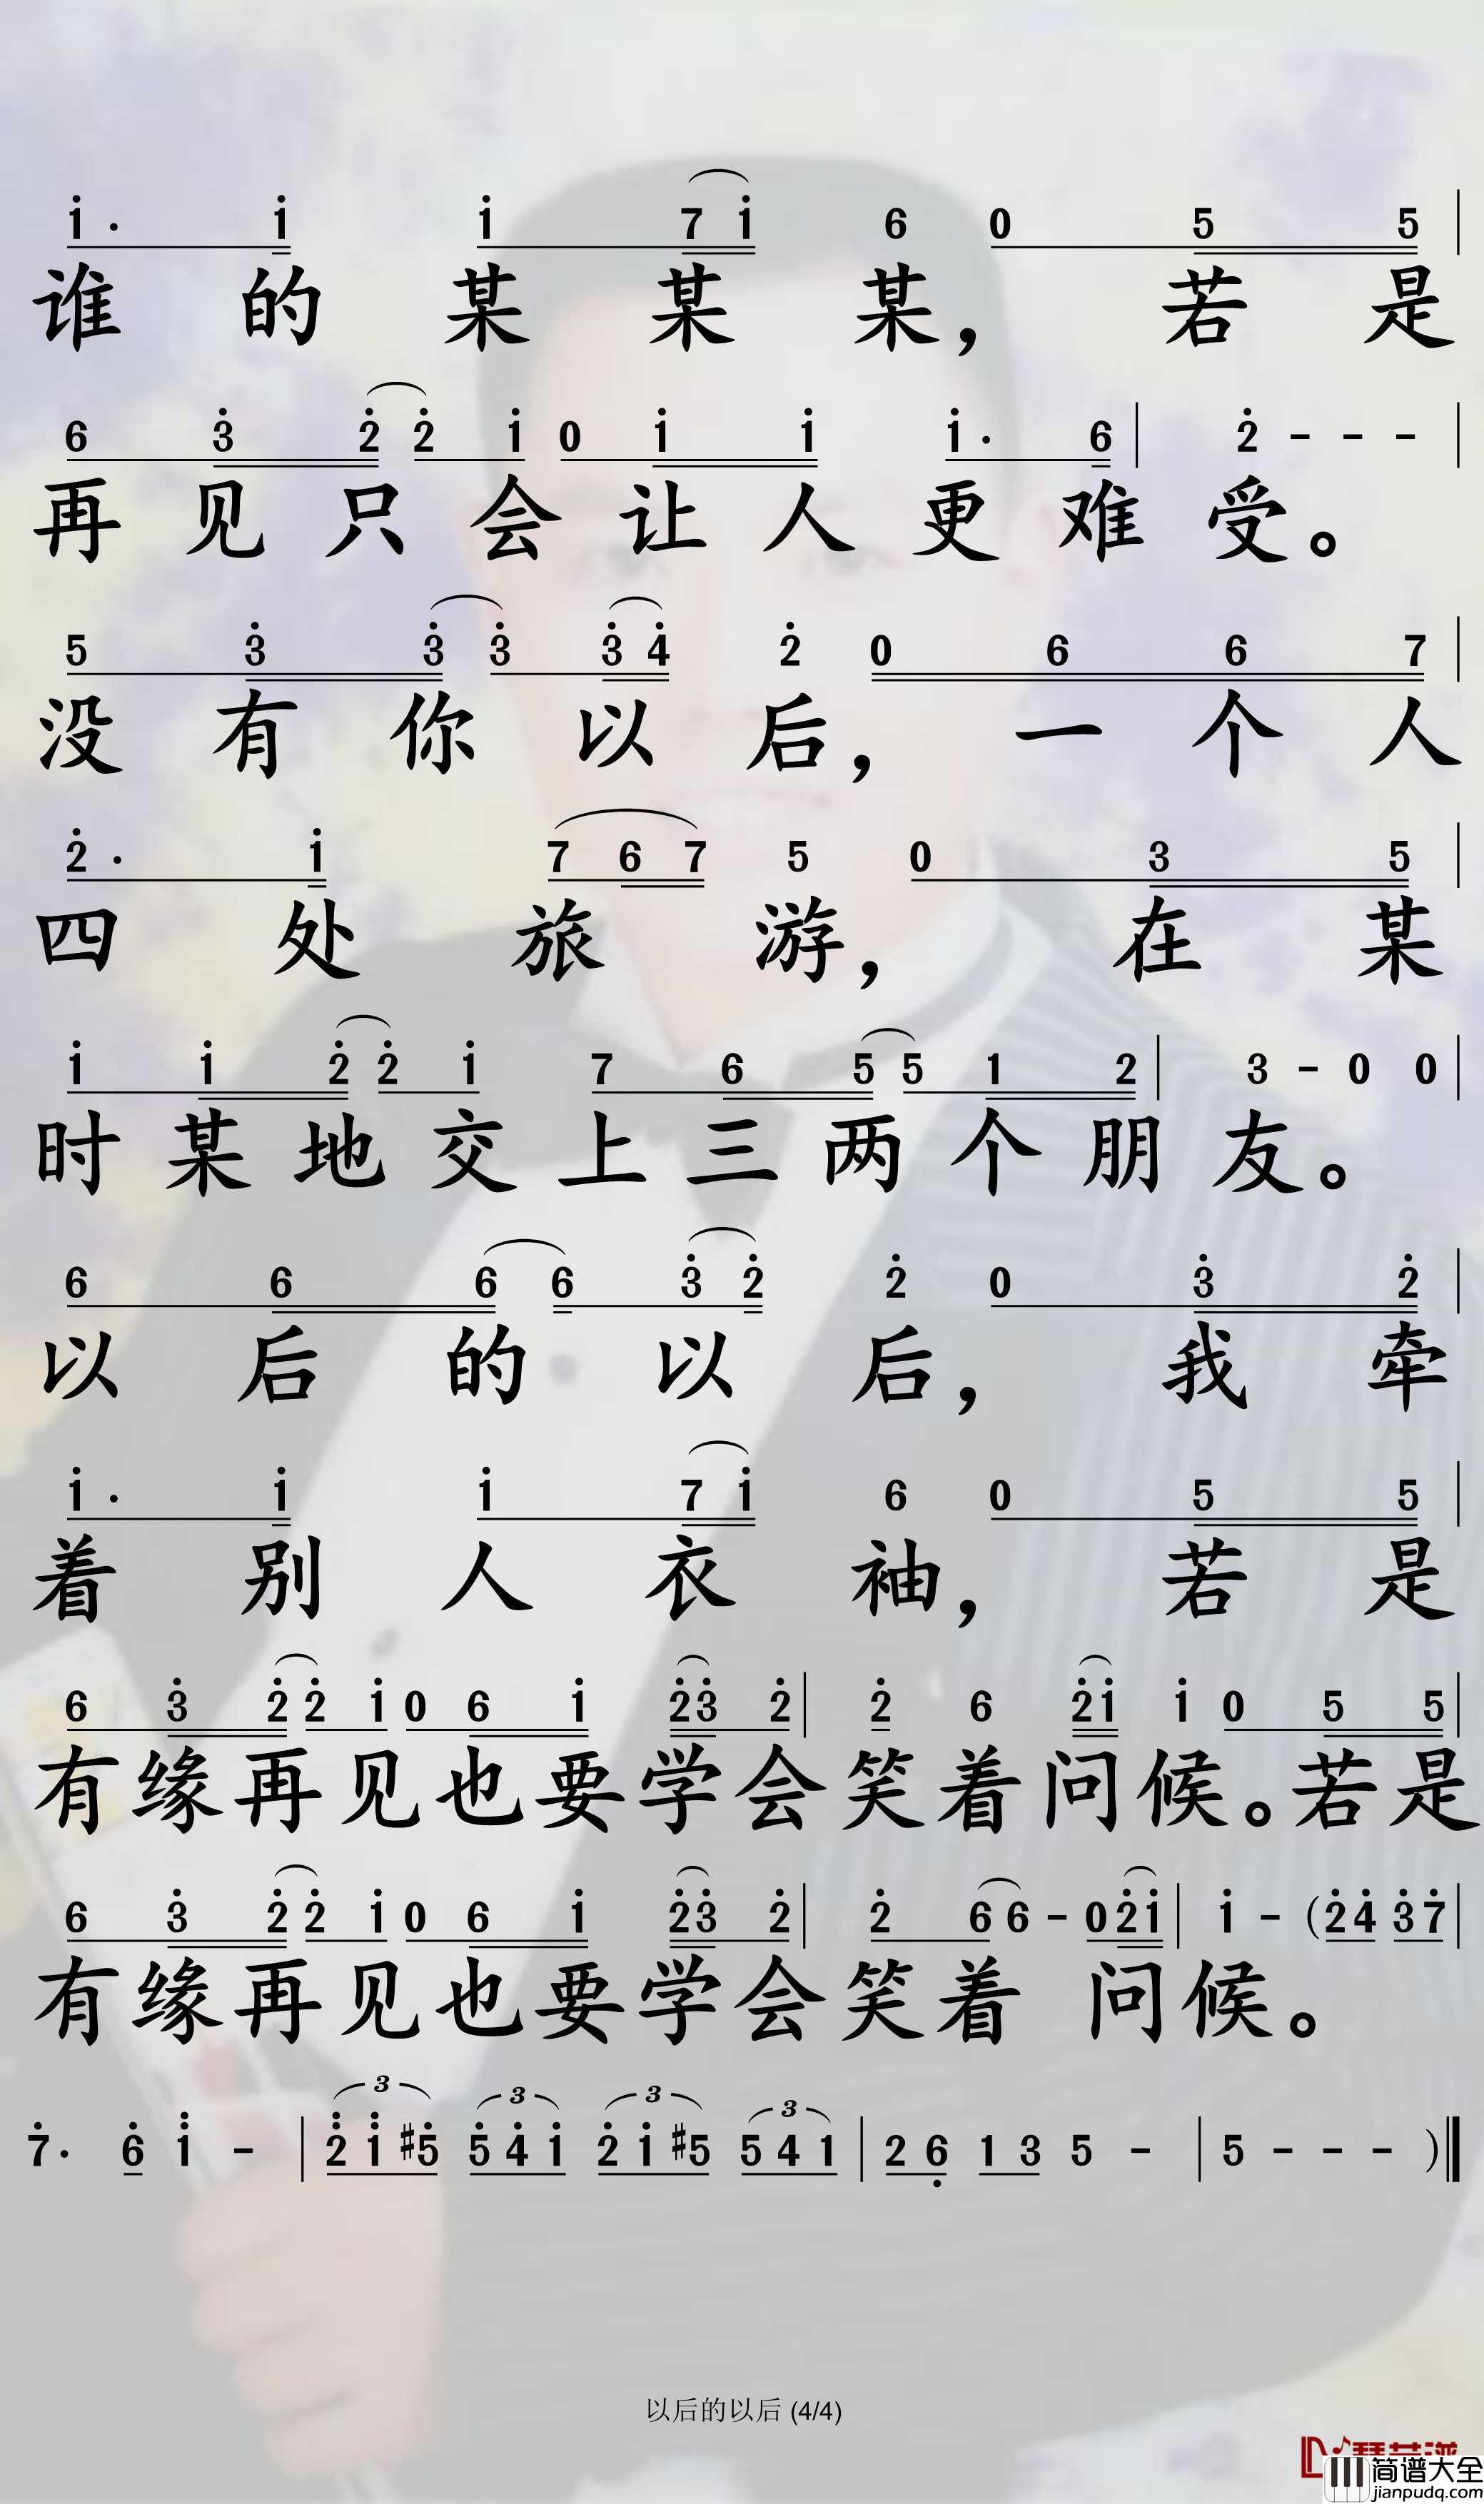 1̇· 1̇ 1̇ 7 1̇ 6 0 5 5 |
谁的某某某，若是
6 3̇ 2̇ 2̇ 1̇ 0 1̇ 1̇ 1̇· 6 | 2̇ - - - |
再见只会让人更难受。
5 3̇ 3̇ 3̇ 3̇ 4̇ 2̇ 0 6 6 7 |
没有你以后，一个人
2̇· 1̇ 7 6 7 5 0 3 5 |
四处旅游，在某
1̇ 1̇ 2̇ 2̇ 1̇ 7 6 5 5 1 2 | 3 - 0 0 |
时某地交上三两个朋友。
6 6 6 6 3̇ 2̇ 2̇ 0 3̇ 2̇ |
以后的以后，我牵
1̇· 1̇ 1̇ 7 1̇ 6 0 5 5 |
着别人衣袖，若是
6 3̇ 2̇ 2̇ 1̇ 0 6 1̇ 2̇ 3̇ 2̇ | 2̇ 6 2̇ 1̇ 1̇ 0 5 5 |
有缘再见也要学会笑着问候。若是
6 3̇ 2̇ 2̇ 1̇ 0 6 1̇ 2̇ 3̇ 2̇ | 2̇ 6 6 - 0 2̇ 1̇ | 1̇ - (2̇ 4̇ 3̇ 7̇ |
有缘再见也要学会笑着问候。
3 3 3 3
7̇· 6̇ 1̈ - | 2̈ 1̈ #5̇ 5̇ 4̇ 1̇ 2̇ 1̇ #5 5 4 1 | 2 6̣ 1 3 5 - | 5 - - - )‖
以后的以后 (4/4)
简谱大全
jianpudq.com